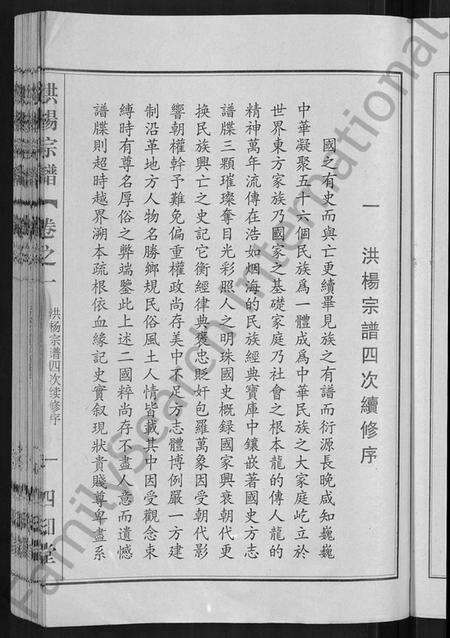 一 洪楊宗譜四次續修序
國之有史而與亡更續畢見族之有譜而衍源長晚咸知巍巍
中華凝聚五十六個民族為一體成為中華民族之大家庭屹立於
世界東方家族乃國家之基礎家庭乃社會之根本龍的傳人龍的
精神萬年流傳在浩如烟海的民族經典寶庫中鑲嵌著國史方志
譜牒三顆璀璨奪目光彩照人之明珠國史概録國家興衰朝代更
換民族興亡之史記它衡經律典褒忠貶奸包羅萬象因受朝代影
響朝權幹予難免偏重權政尚存美中不足方志體博例嚴一方建
制沿革地方人物名勝鄉規民俗風土人情皆載其中因受觀念束
縛時有尊名厚俗之弊端鑒此上述二國粹尚存不盡人意而遺憾
譜牒則超時越界溯本疏根依血緣記史實叙現狀貴賤尊卑盡系
洪楊宗譜
卷之一
洪杨宗譜四次续修序
一
四知堂
Family Search International